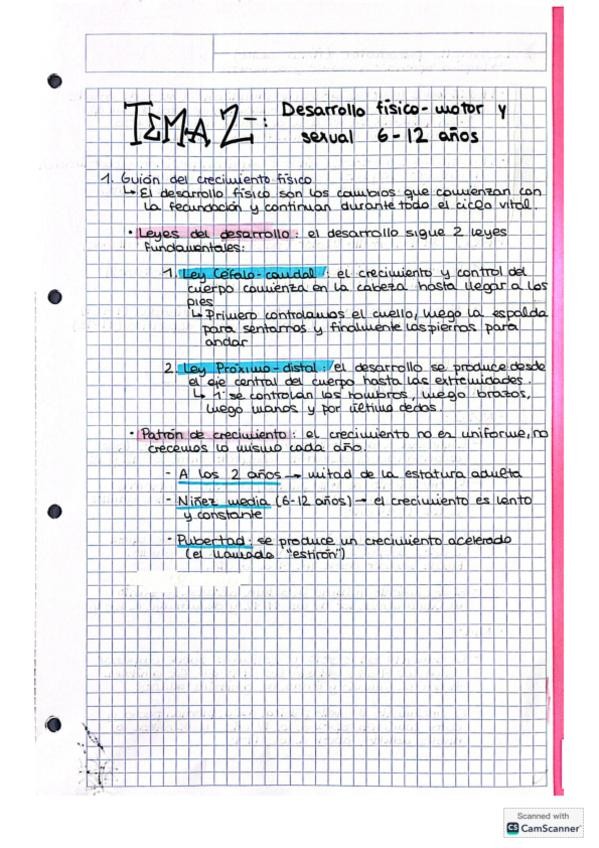 TEMA 2-: Desarrollo físico-motor y
sexual 6-12 años
1. Guión del crecimiento físico
↳ El desarrollo físico son los cambios que comienzan con
la fecundación y continúan durante todo el ciclo vital.
• Leyes del desarrollo: el desarrollo sigue 2 leyes
fundamentales:
1. Ley Céfalo-caudal: el crecimiento y control del
cuerpo comienza en la cabeza hasta llegar a los
pies
↳ Primero controlamos el cuello, luego la espalda
para sentarnos y finalmente las piernas para
andar
2. Ley Próximo-distal: el desarrollo se produce desde
el eje central del cuerpo hasta las extremidades.
↳ 1º se controlan los hombros, luego brazos,
luego manos y por último dedos.
• Patrón de crecimiento: el crecimiento no es uniforme, no
crecemos lo mismo cada año.
- A los 2 años → mitad de la estatura adulta
- Niñez media (6-12 años) → el crecimiento es lento
y constante
- Pubertad: se produce un crecimiento acelerado
(el llamado "estirón")
Scanned with
CS CamScanner